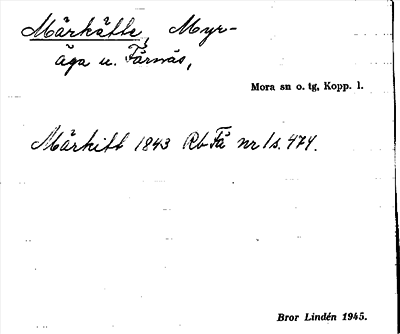 Märkätte, Myr-
äga u. Färnäs,
Mora sn o. tg, Kopp. l.
Märkitt 1843 Rb Få nr 1 s. 474.
Bror Lindén 1945.